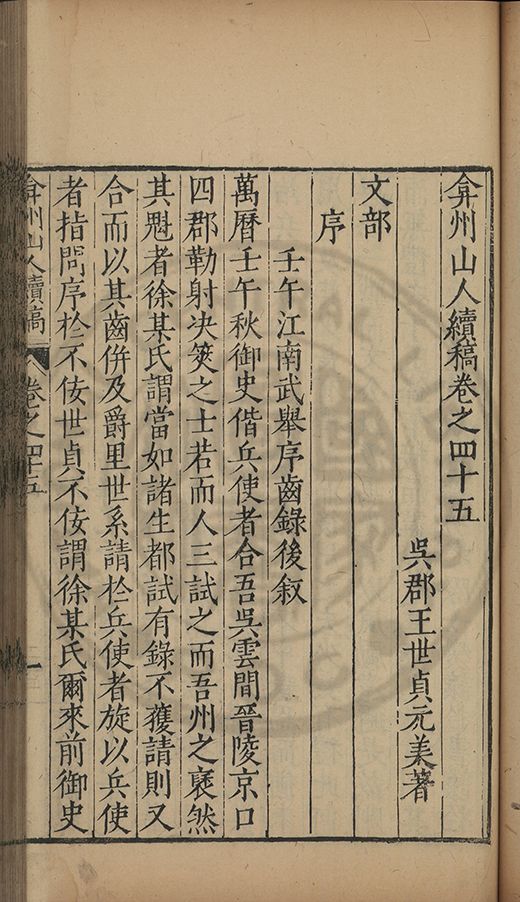 弇州山人續稿卷之四十五
吳郡王世貞元美著
文部
序
壬午江南武舉序齒錄後叙
萬曆壬午秋御史偕兵使者合吾吳雲間晉陵京口
四郡勒射决筴之士若而人三試之而吾州之褎然
其魁者徐某氏謂當如諸生都試有錄不獲請則又
合而以其齒併及爵里世系請於兵使者旋以兵使
者指問序於不佞世貞不佞謂徐某氏爾來前御史
弇州山人續稿 卷之四十五 一